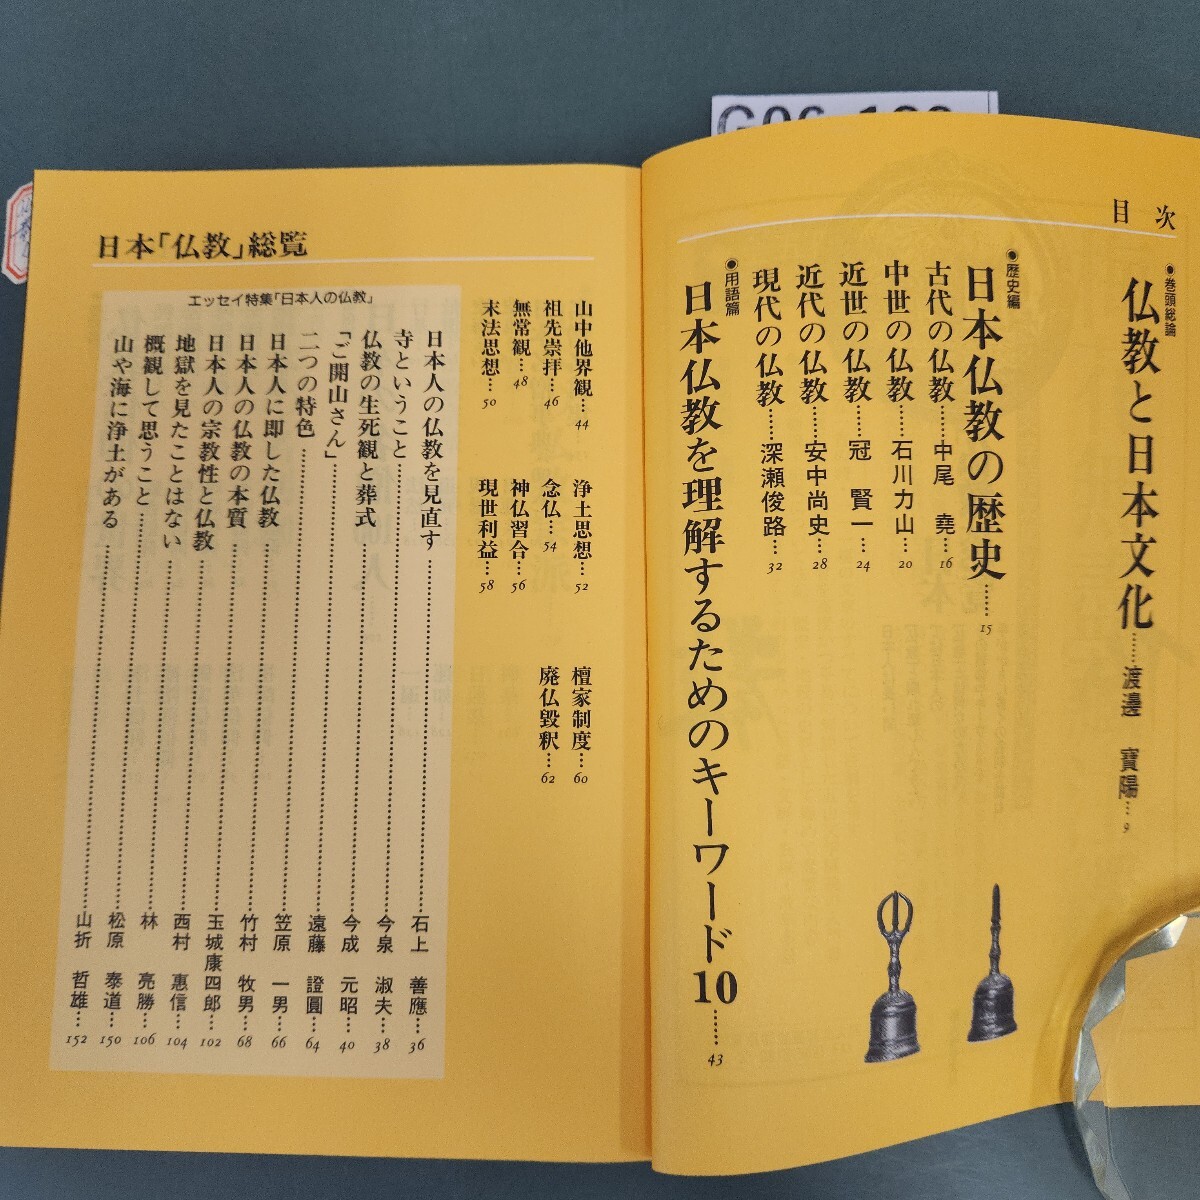 目次
●巻頭総論
仏教と日本文化……渡邊 寶陽…9
●歴史編
日本仏教の歴史……15
古代の仏教……中尾 堯…16
中世の仏教……石川力山…20
近世の仏教……冠 賢一…24
近代の仏教……安中尚史…28
現代の仏教……深瀬俊路…32
●用語篇
日本仏教を理解するためのキーワード10……43
日本「仏教」総覧
山中他界観…44
祖先崇拝…46
無常観…48
末法思想…50
浄土思想…52
念仏…54
神仏習合…56
現世利益…58
檀家制度…60
廃仏毀釈…62
エッセイ特集「日本人の仏教」
日本人の仏教を見直す……石上 善應…36
寺ということ……今泉 淑夫…38
仏教の生死観と葬式……今成 元昭…40
「ご開山さん」……遠藤 證圓…64
二つの特色……笠原 一男…66
日本人に即した仏教……竹村 牧男…68
日本人の仏教の本質……玉城康四郎…102
日本人の宗教性と仏教……西村 惠信…104
地獄を見たことはない……林 亮勝…106
概観して思うこと……松原 泰道…150
山や海に浄土がある……山折 哲雄…152